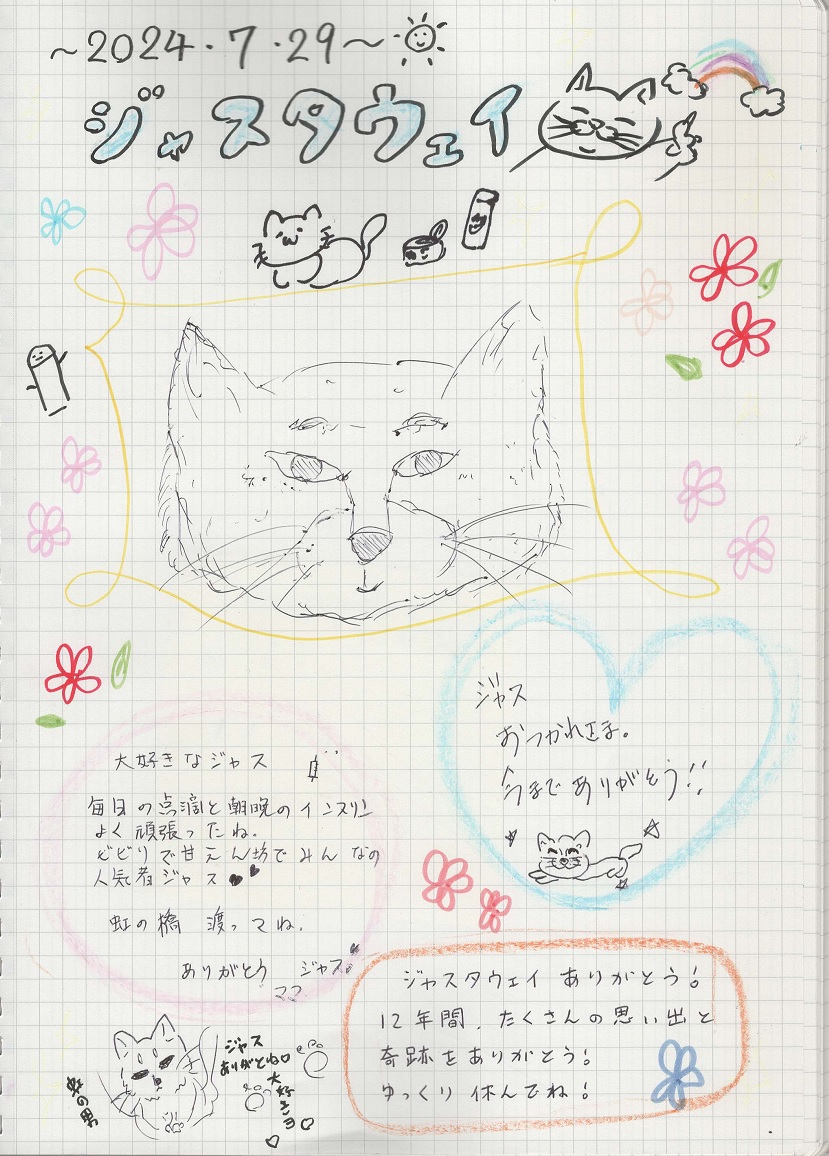 ～2024・7・29～
ジャスタウェイ
ジャス
おつかれさま。
今までありがとう!!
大好きなジャス
毎日の点滴と朝晩のインスリン
よく頑張ったね.
ビビリで甘えん坊でみんなの
人気者ジャス
虹の橋 渡ってね.
ありがとう ジャス
ママ
ジャスタウェイ ありがとう!
12年間、たくさんの思い出と
奇跡をありがとう!
ゆっくり休んでね!
ジャス
ありがとね
大好きヨ